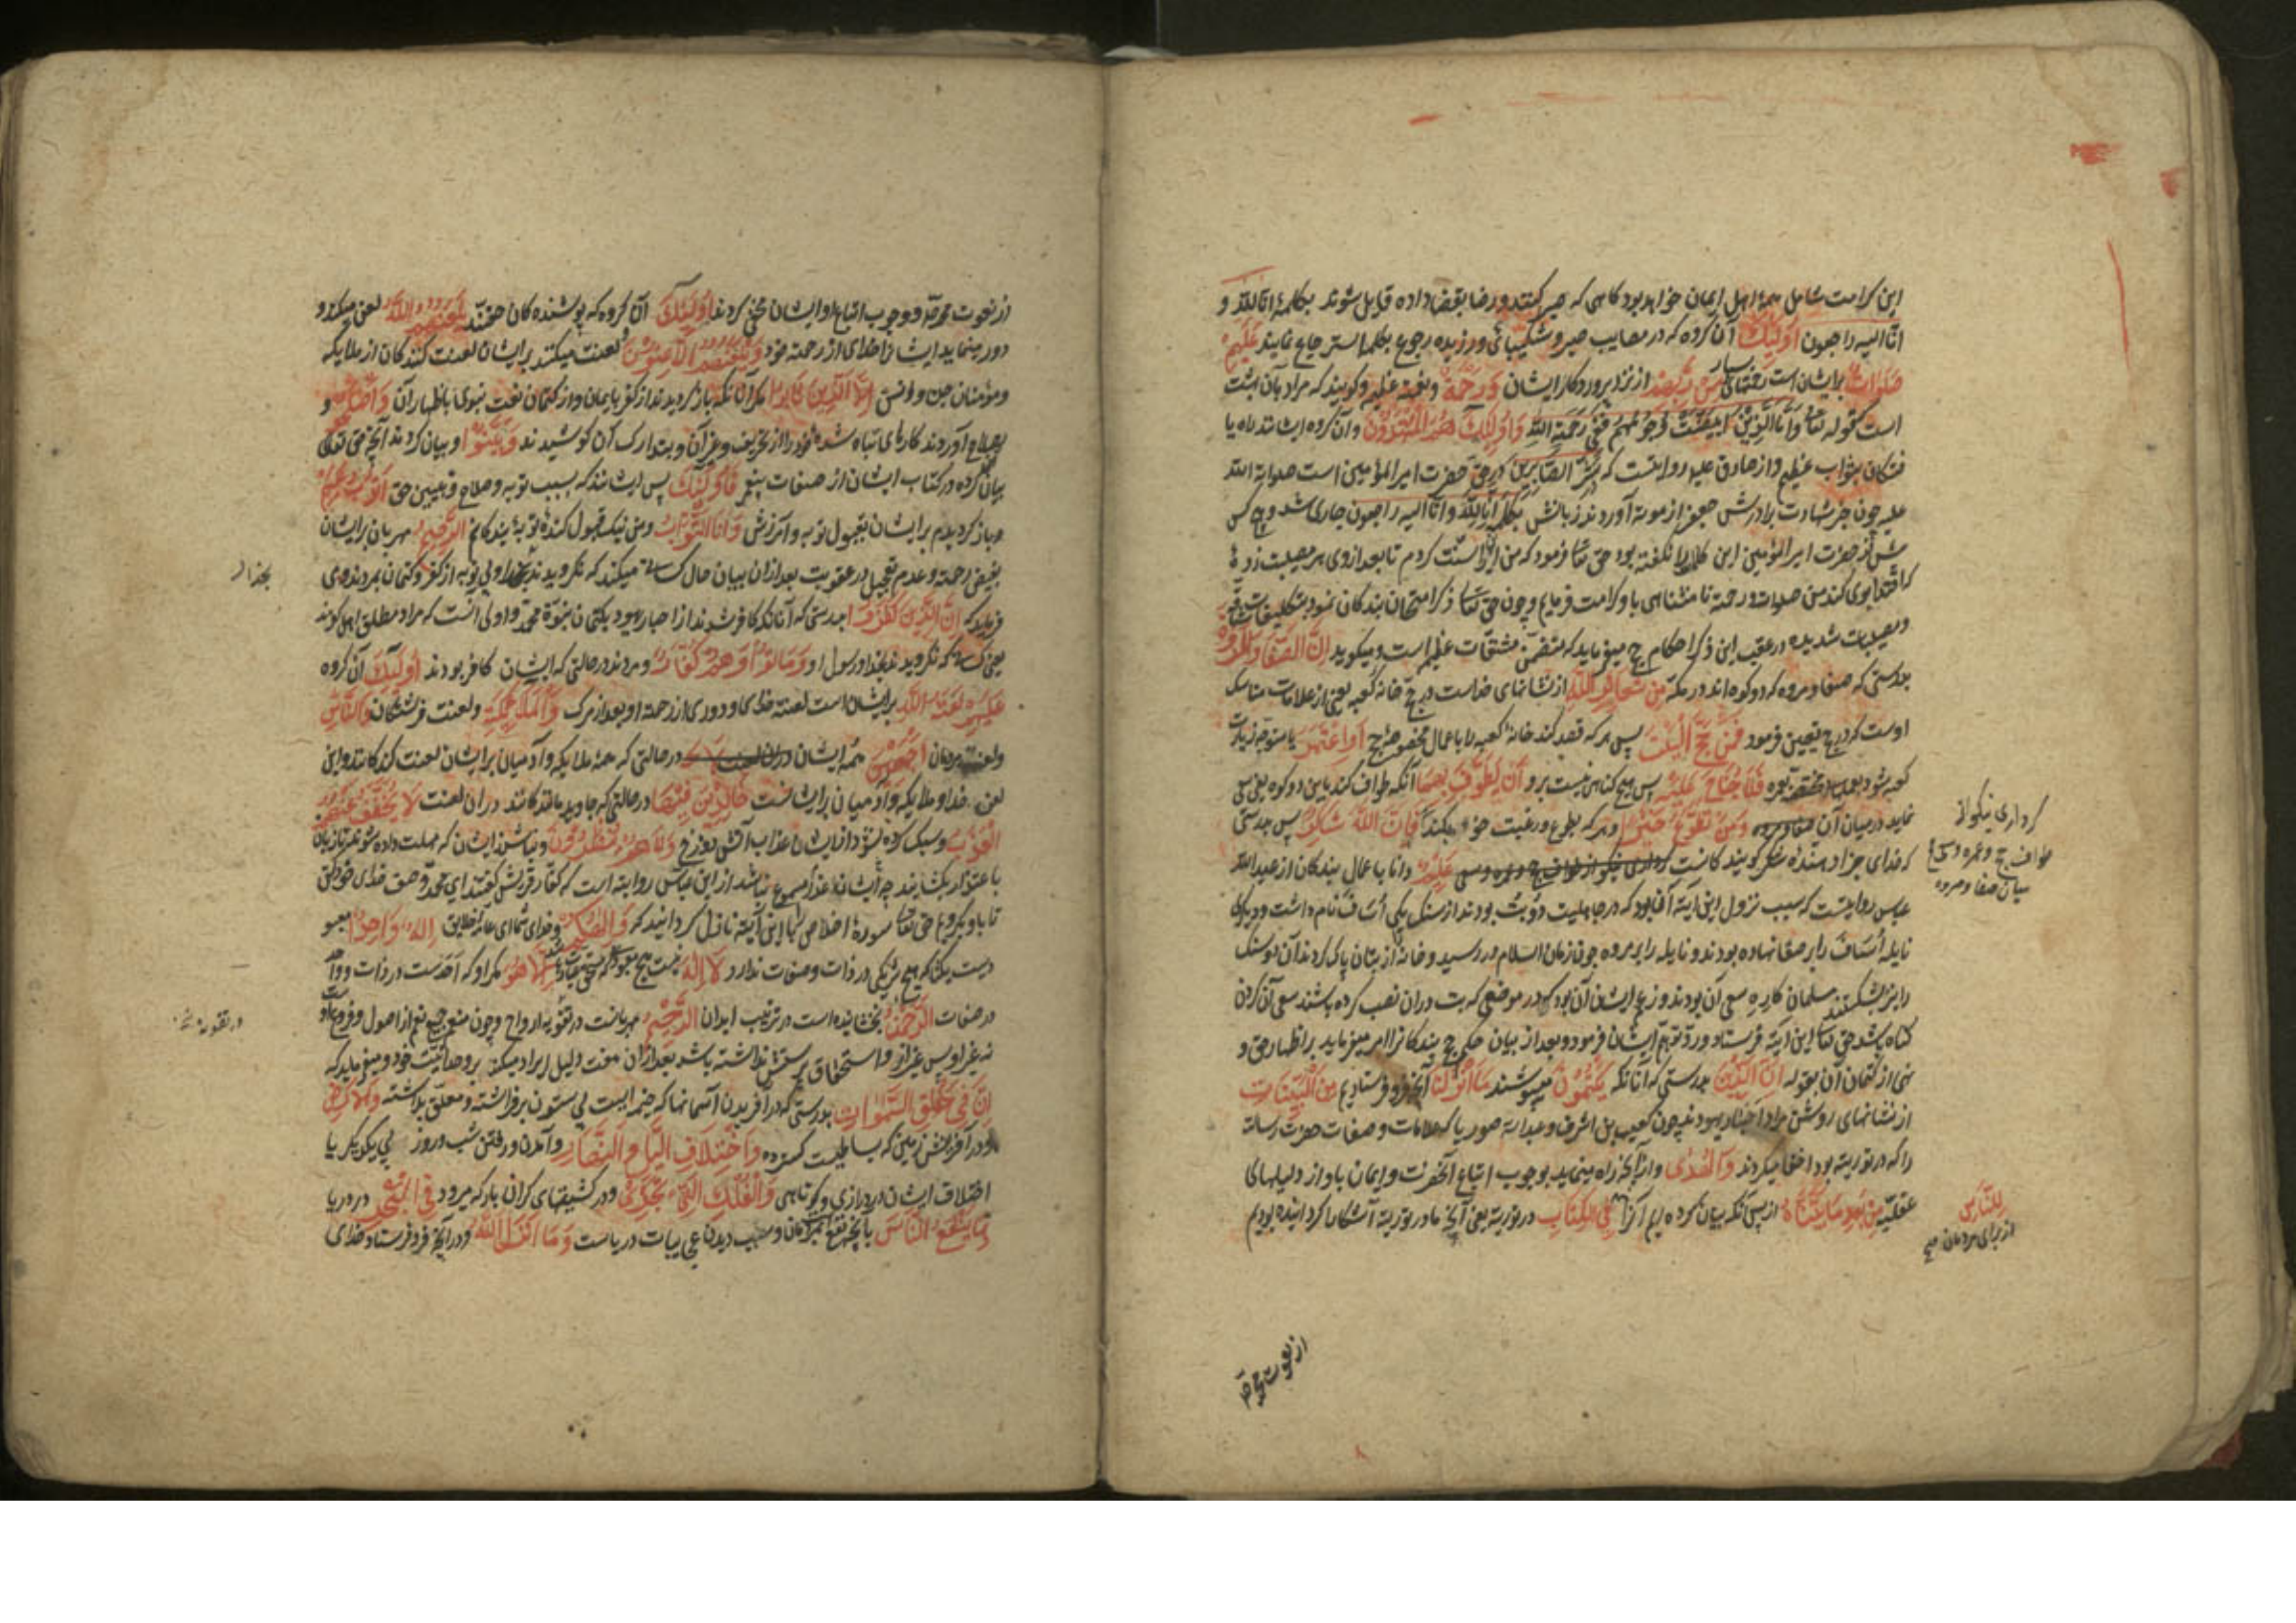 این کرامت شامل همهٔ اهل ایمان خواهد بود کاهی که صبر کنند و رضا بقضا داده قایل شوند بکلمهٔ انا لله و
انا الیه راجعون اُولٰئِكَ آن کروه که در مصایب صبر و شکیبائی ورزیده رجوع بکلمهٔ استرجاع نمایند عَلَیْهِمْ
صَلَوَاتٌ برایشان است رحمتهای بسیار مِن رَّبِّهِمْ از نزد پروردکار ایشان وَرَحْمَةٌ و نعمة عظیم و کویند که مراد بآن بهشت
است کقوله تعا وَأَمَّا الَّذِینَ ابْیَضَّتْ وُجُوهُهُمْ فَفِی رَحْمَةِ اللهِ وَاُولٰئِكَ هُمُ الْمُهْتَدُونَ و آن کروه ایشانند راه یا
فتکان بثواب عظیم و از صادق علیه روایتست که بَشِّرِ الصَّابِرِینَ در حق حضرت امیر المؤمنین است صلواة الله
علیه چون خبر شهادت برادرش جعفر از موته آوردند زبانش بکلمهٔ انا لله وانا الیه راجعون جاری شد و هیچ کس
پیش از حضرت امیر المؤمنین این کلمه را نکفته بود حق تعا فرمود که من این را سنت کردم تا بعد از وی هر مصیبت زدهٔ
که اقتدا بوی کند من صلوات و رحمة نامتناهی باو کرامت فرمایم و چون حق تعا ذکر امتحان بندکان نمود بتکلیفات شاقه
و مصیبات شدیده در عقب این ذکر احکام حج میفرماید که متضمن مشقات عظیم است و میکوید اِنَّ الصَّفَا وَالْمَرْوَةَ
بدرستی که صفا و مروه که دو کوه اند در مکه مِن شَعَائِرِ اللهِ از نشانهای خداست در حج خانهٔ کعبه یعنی از علامات مناسک
اوست که در حج تعیین فرمود فَمَنْ حَجَّ الْبَیْتَ پس هر که قصد کند خانهٔ کعبه را باعمال مخصوصهٔ حج اَوِ اعْتَمَرَ یا متوجه زیارت
کعبه شود بعمل مختصهٔ بعمره فَلَا جُنَاحَ عَلَیْهِ پس هیچ کناهی نیست برو اَن یَطَّوَّفَ بِهِمَا آنکه طواف کند باین دو کوه یعنی سعی
نماید در میان آن صفا و مروه وَمَن تَطَوَّعَ خَیْرًا و هر که بطوع و رغبت خود بکند فَإِنَّ اللهَ شَاكِرٌ پس بدرستی
که خدای جزا دهندهٔ شکر کویندکانست کرداری نیکو از طواف حج و عمره و سعی عَلِیمٌ و دانا باعمال بندکان از عبدالله
عباس روایتست که سبب نزول این آیة آن بود که در جاهلیت دو بت بودند از سنک یکی اُسَاف نام داشت و دیکری
نایله اُسَاف را بر صفا نهاده بودند و نایله را بر مروه چون زمان اسلام در رسید و خانه از بتان پاک کردند آن دو سنک
را نیز بشکستند مسلمانان کاره سعی آن بودند و زعم ایشان آن بود که در موضعی که بت دران نصب کرده باشند سعی آن کردن
کناه باشد حق تعا این آیة فرستاد و رد توهم ایشان فرمود و بعد از بیان حکم حج بندکانرا امر میفرماید بر اظهار حق و
نهی از کتمان آن بقوله اِنَّ الَّذِینَ بدرستی که آنانکه یَكْتُمُونَ میپوشند مَا اَنزَلْنَا آنچه فرو فرستادیم مِنَ الْبَیِّنَاتِ
از نشانهای روشن مراد احبار یهودند چون کعب بن اشرف و عبدالله صوریا که علامات و صفات حضرت رسالة
را که در توریة بود اخفا میکردند وَالْهُدَى و از آنچه راه مینماید بوجوب اتباع آنحضرت و ایمان باو از دلیلهای
عقلیه مِن بَعْدِ مَا بَیَّنَّاهُ از پس آنکه بیان کرده ایم آنرا فِی الْكِتَابِ در توریة یعنی آنچه ما در توریة آشکارا کردانیده بودیم
کرداری نیکو از
طواف حج و عمره و سعی
میان صفا و مروه
لِلنَّاسِ
از برای مردمان
از نعوت محمد
از نعوت محمد و وجوب اتباع او ایشان مخفی کردند اُولٰئِكَ آن کروه که پوشنده کان حقند یَلْعَنُهُمُ اللهُ لعن میکند و
دور مینماید ایشانرا خدای از رحمة خود وَیَلْعَنُهُمُ اللَّاعِنُونَ و لعنت میکنند برایشان لعنت کنندکان از ملایکه
و مؤمنان جن و انس اِلَّا الَّذِینَ تَابُوا مکر آنانکه باز کردیدند از کفر بایمان و از کتمان نعت نبوی باظهار آن وَاَصْلَحُوا و
بصلاح آوردند کارهای تباه شدهٔ خود را از تحریف و غیر آن و بتدارک آن کوشیدند وَبَیَّنُوا و بیان کردند آنچه حق تعالی
بیان کرده در کتاب ایشان از صفات پیغمبر فَاُولٰئِكَ پس ایشانند که بسبب توبه و صلاح و تبیین حق اَتُوبُ عَلَیْهِمْ
و باز کردیدم برایشان بقبول توبه و آمرزش وَاَنَا التَّوَّابُ و من نیک قبول کنندهٔ توبهٔ بندکانم الرَّحِیمُ مهربان برایشان
بفیض رحمة و عدم تعجیل در عقوبت بعد ازان بیان حال کسانی میکند که نکرویدند بخدا و بی توبه از کفر و کتمان بمردند و می
فرماید که اِنَّ الَّذِینَ كَفَرُوا بدرستی که آنانکه کافر شوند از احبار یهود بکتمان نبوة محمد و اولی آنست که مراد مطلق اهل کفرند
یعنی کسانی که نکرویدند بخدا و رسول او وَمَاتُوا وَهُمْ كُفَّارٌ و مردند در حالتی که ایشان کافر بودند اُولٰئِكَ آن کروه
عَلَیْهِمْ لَعْنَةُ اللهِ برایشان است لعنة خدای و دوری از رحمة او بعد از مرک وَالْمَلٰئِكَةِ و لعنت فرشتکان وَالنَّاسِ
و لعنت مردمان اَجْمَعِینَ همهٔ ایشان در حالتی که همهٔ ملایکه و آدمیان برایشان لعنت کنندکانند و این
لعن خدا و ملایکه و آدمیان برایشانست خَالِدِینَ فِیهَا در حالتی که جاوید مانندکانند دران لعنت لَا یُخَفَّفُ عَنْهُمُ
الْعَذَابُ و سبک کرده نشود از ایشان عذاب آتش دوزخ وَلَا هُمْ یُنظَرُونَ و نباشند ایشان که مهلت داده شوند تا زبان
باعتذار بکشایند چه ایشانرا عذر مسموع نباشد از ابن عباس روایة است که کفار قریش کفتند ای محمد وصف خدای خود کن
تا باو بکرویم حق تعا سورهٔ اخلاص با این آیة نازل کردانید که وَاِلٰهُكُمْ و خدای شما ای عامهٔ خلایق اِلٰهٌ وَاحِدٌ معبو
دیست یکتا که هیچ شریکی در ذات و صفات ندارد لَا اِلٰهَ نیست هیچ معبودی که مستحق عبادت باشد اِلَّا هُوَ مکر او که احدست در ذات و واحد
در صفات الرَّحْمٰنُ بخشاینده است در تربیت ابدان الرَّحِیمُ مهربانست در تقویهٔ ارواح و چون منعم جمیع نعم از اصول و فروع اوست
نه غیر او پس غیر از او استحقاق پرستش نداشته باشد بعد ازان صفت دلیل ایراد میکند بر وحدانیت خود و میفرماید که
اِنَّ فِی خَلْقِ السَّمٰوَاتِ بدرستی که در آفریدن آسمانها که خیمه ایست بی ستون برافراشته و معلق بداشته وَالْاَرْضِ
و در آفرینش زمین که بساطیست کسترده وَاخْتِلَافِ الَّیْلِ وَالنَّهَارِ و آمدن و رفتن شب و روز پی یکدیکر یا
اختلاف ایشان در درازی و کوتاهی وَالْفُلْكِ الَّتِی تَجْرِی و در کشتیهای کران بار که میرود فِی الْبَحْرِ در دریا
بِمَا یَنفَعُ النَّاسَ بآنچه نفع مردمان و سبب دیدن عجایبات دریاست وَمَا اَنزَلَ اللهُ و در آنچه فرو فرستاد خدای
بخدا
در تقویه